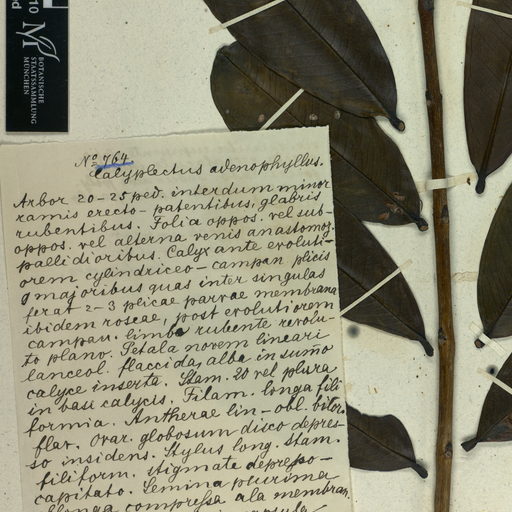 10
BOTANISCHE
STAATSSAMMLUNG
MÜNCHEN
No 764.
Calyplectus adenophyllus.
Arbor 20-25 ped. interdum minor
ramis erecto-patentibus, glabris
rubentibus. Folia oppos. vel sub-
oppos. vel alterna venis anastomoz.
pallidioribus. Calyx ante evoluti-
orem cylindriceo-campan plicis
9 majoribus quas inter singulas
ferat 2-3 plicae parvae membrana
ibidem roseae, post evolutiorem
campan. limbo rubente revolu-
to plano. Petala novem lineari
lanceol. flaccida, alba in summo
calyce inserta. Stam. 20 vel plura
in basi calycis. Filam. longa fili
formia. Antherae lin-obl. bilor.
flav. Ovar. globosum disco depres-
so insidens. Stylus long. stam.
filiform. stigmate depresso-
capitato. Semina plurima
compressa ala membran
capsula